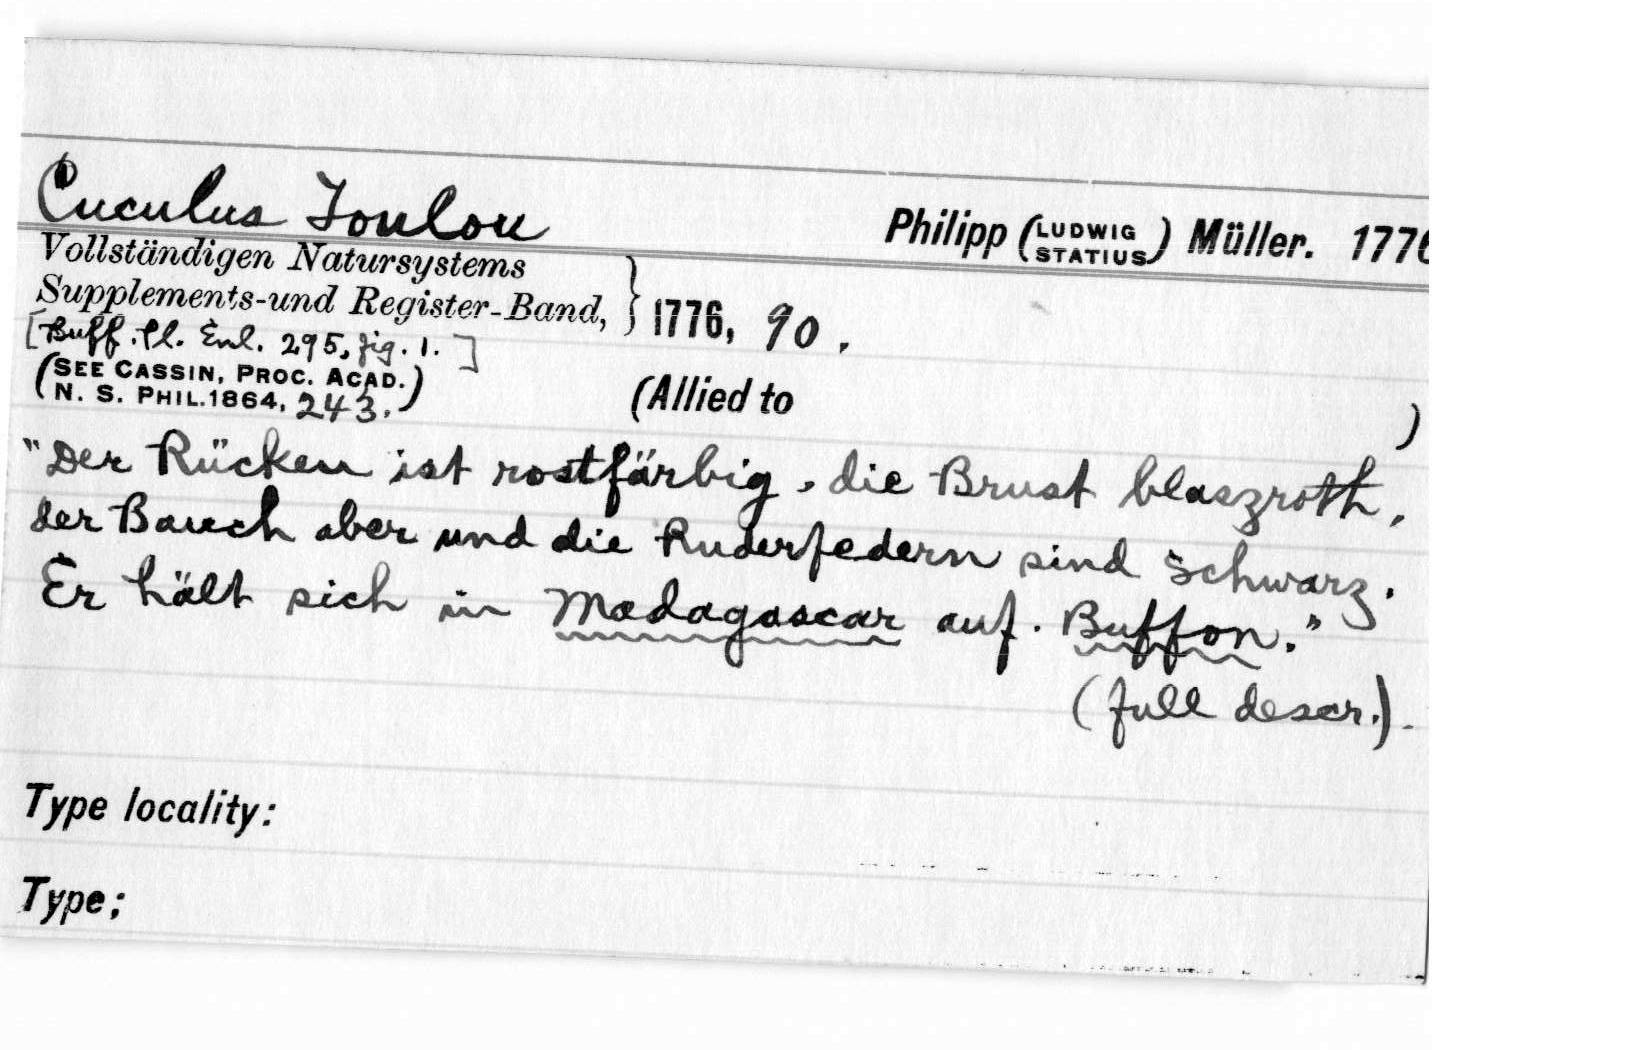 Cuculus Toulou
Philipp (LUDWIG STATIUS) Müller. 1776
Vollständigen Natursystems
Supplements-und Register-Band, } 1776, 90.
[Buff. Pl. Enl. 295, fig. 1.]
(SEE CASSIN, PROC. ACAD.
N. S. PHIL. 1864, 243.)
(Allied to )
"Der Rücken ist rostfärbig, die Brust blaszroth,
der Bauch aber und die Ruderfedern sind schwarz.
Er hält sich in Madagascar auf. Buffon."
(full descr.).
Type locality:
Type;